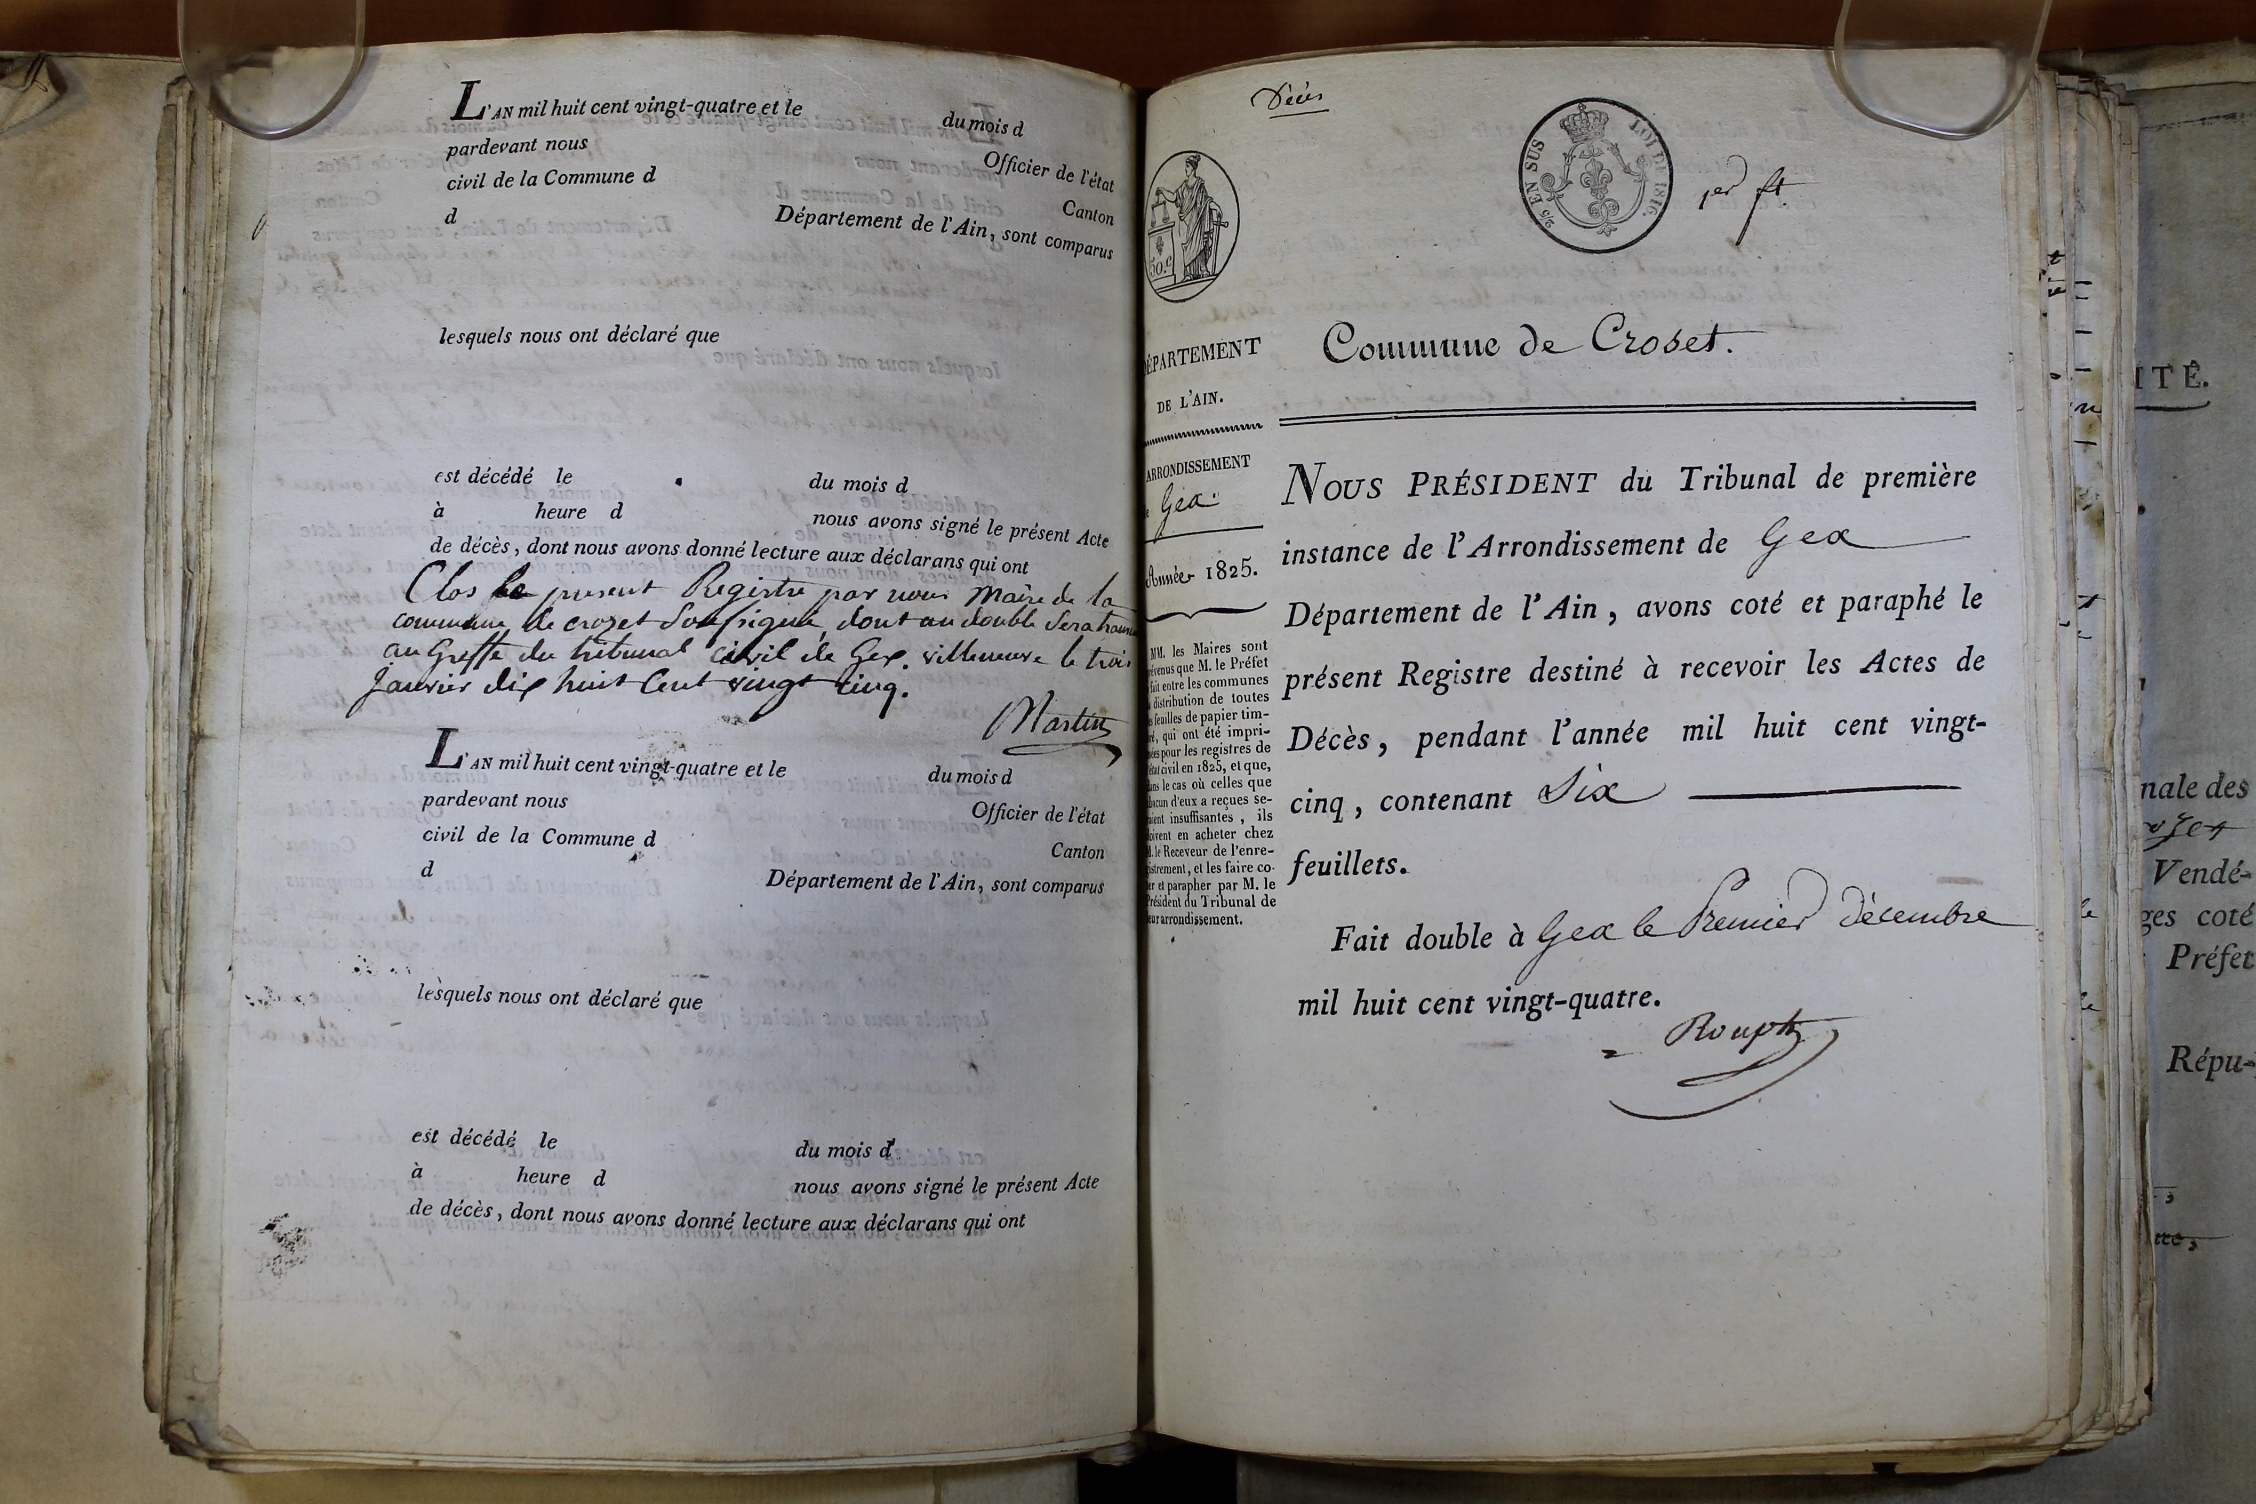 L'AN mil huit cent vingt-quatre et le du mois d
pardevant nous Officier de l'état
civil de la Commune d Canton
d Département de l'Ain, sont comparus
lesquels nous ont déclaré que
est décédé le du mois d
à heure d nous avons signé le présent Acte
de décès, dont nous avons donné lecture aux déclarans qui ont
Clos le present Registre par nous Maire de la
commune de crozet Soussigné, dont un double sera
au Greffe du tribunal civil de Gex. villeneuve le trois
Janvier dix huit Cent vingt cinq.
Martin
L'AN mil huit cent vingt-quatre et le du mois d
pardevant nous Officier de l'état
civil de la Commune d Canton
d Département de l'Ain, sont comparus
lesquels nous ont déclaré que
est décédé le du mois d
à heure d nous avons signé le présent Acte
de décès, dont nous avons donné lecture aux déclarans qui ont
Décès
2/5 EN SUS LOI DE 1816.
1er ft.
50.c
Commune de Croset.
DÉPARTEMENT
DE L'AIN.
ARRONDISSEMENT
Gex.
Année 1825.
MM. les Maires sont
prévenus que M. le Préfet
fait entre les communes
distribution de toutes
feuilles de papier tim-
bré, qui ont été impri-
mées pour les registres de
l'état civil en 1825, et que,
dans le cas où celles que
chacun d'eux a reçues se-
raient insuffisantes, ils
doivent en acheter chez
M. le Receveur de l'enre-
gistrement, et les faire co-
ter et parapher par M. le
Président du Tribunal de
leur arrondissement.
NOUS PRÉSIDENT du Tribunal de première
instance de l'Arrondissement de Gex
Département de l'Ain, avons coté et paraphé le
présent Registre destiné à recevoir les Actes de
Décès, pendant l'année mil huit cent vingt-
cinq, contenant Six
feuillets.
Fait double à Gex le Premier décembre
mil huit cent vingt-quatre.
ITÉ.
nale des
Vendé-
ges coté
Préfet
Répu-